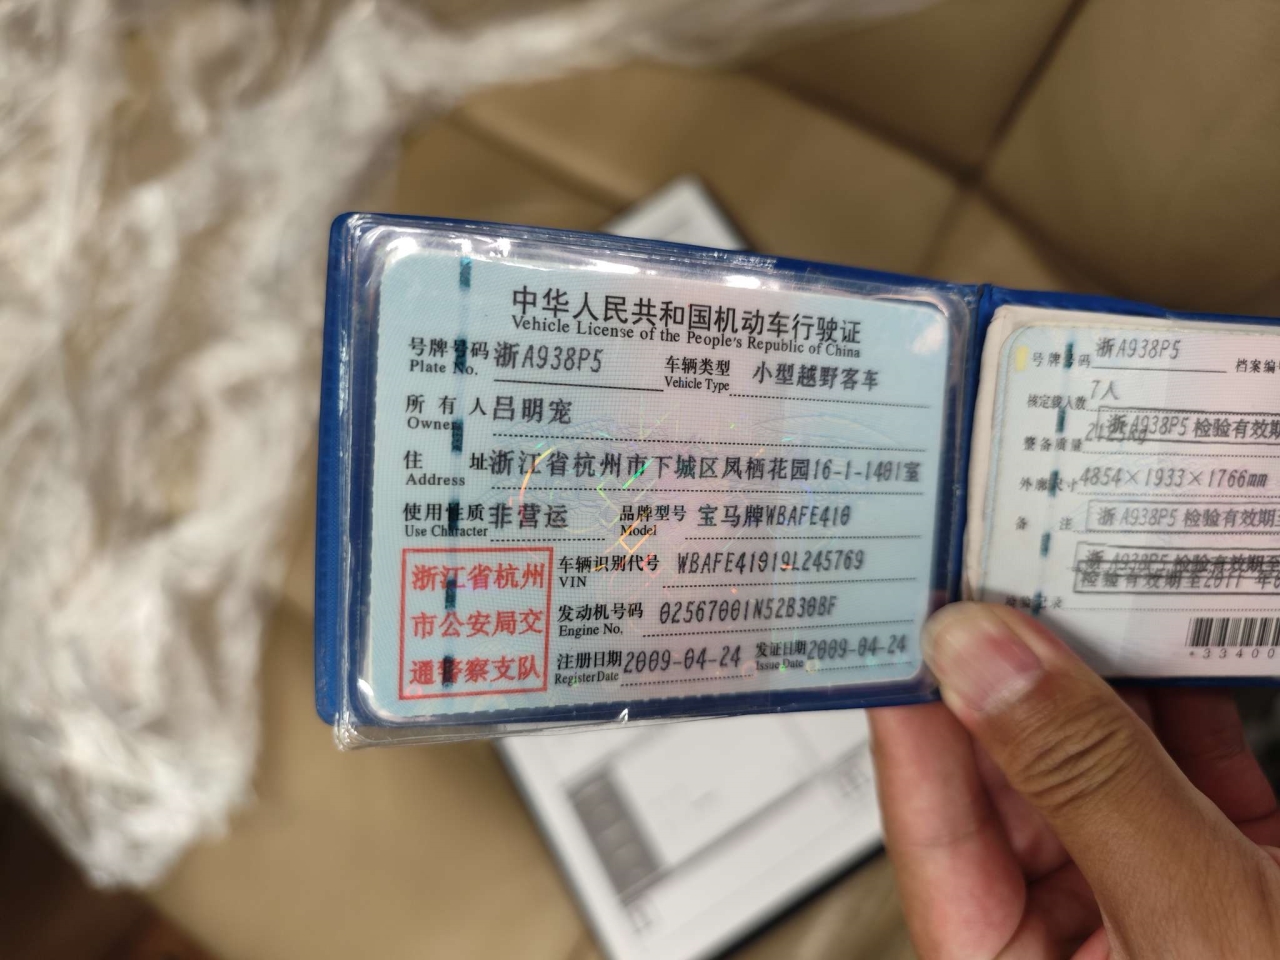 中华人民共和国机动车行驶证
Vehicle License of the People's Republic of China
号牌号码 浙A938P5 车辆类型 小型越野客车
Plate No. Vehicle Type
所有人 吕明宠
Owner
住址 浙江省杭州市下城区凤栖花园16-1-1401室
Address
使用性质 非营运 品牌型号 宝马牌WBAFE410
Use Character Model
浙江省杭州
市公安局交
通警察支队
车辆识别代号 WBAFE41919L245769
VIN
发动机号码 02567001N52B30BF
Engine No.
注册日期 2009-04-24 发证日期 2009-04-24
Register Date Issue Date
号牌号码 浙A938P5 档案编
核定载人数 7人
浙A938P5 检验有效期
整备质量
外廓尺寸 4854×1933×1766mm
备注 浙A938P5 检验有效期
浙A938P5 检验有效期至
检验有效期至2011年
*33400